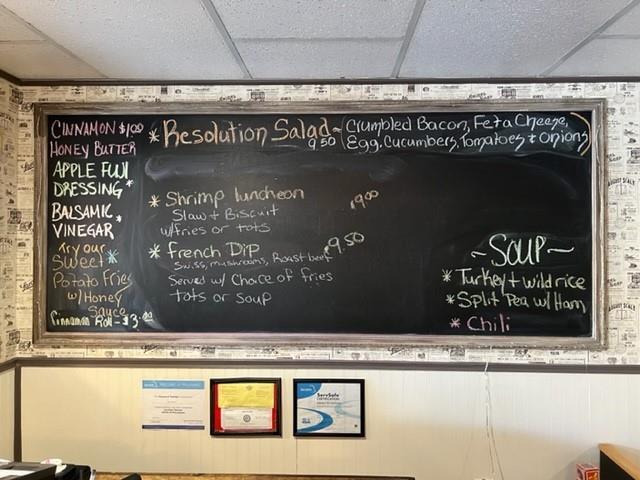 CINNAMON $1.00
HONEY BUTTER
APPLE FUJI
DRESSING *
BALSAMIC *
VINEGAR
Try our
Sweet *
Potato Fries
w/ Honey
Sauce
Cinnamon Roll - $3.00
* Resolution Salad ~ (Crumbled Bacon, Feta Cheese,
9.50 Egg, Cucumbers, Tomatoes + Onions)
* Shrimp luncheon 9.00
Slaw + Biscuit
w/fries or tots
* French Dip 9.50
Swiss, mushrooms, Roast beef
Served w/ Choice of fries
tots or soup
~ SOUP ~
* Turkey + wild rice
* Split Pea w/ Ham
* Chili
ServSafe
CERTIFICATION